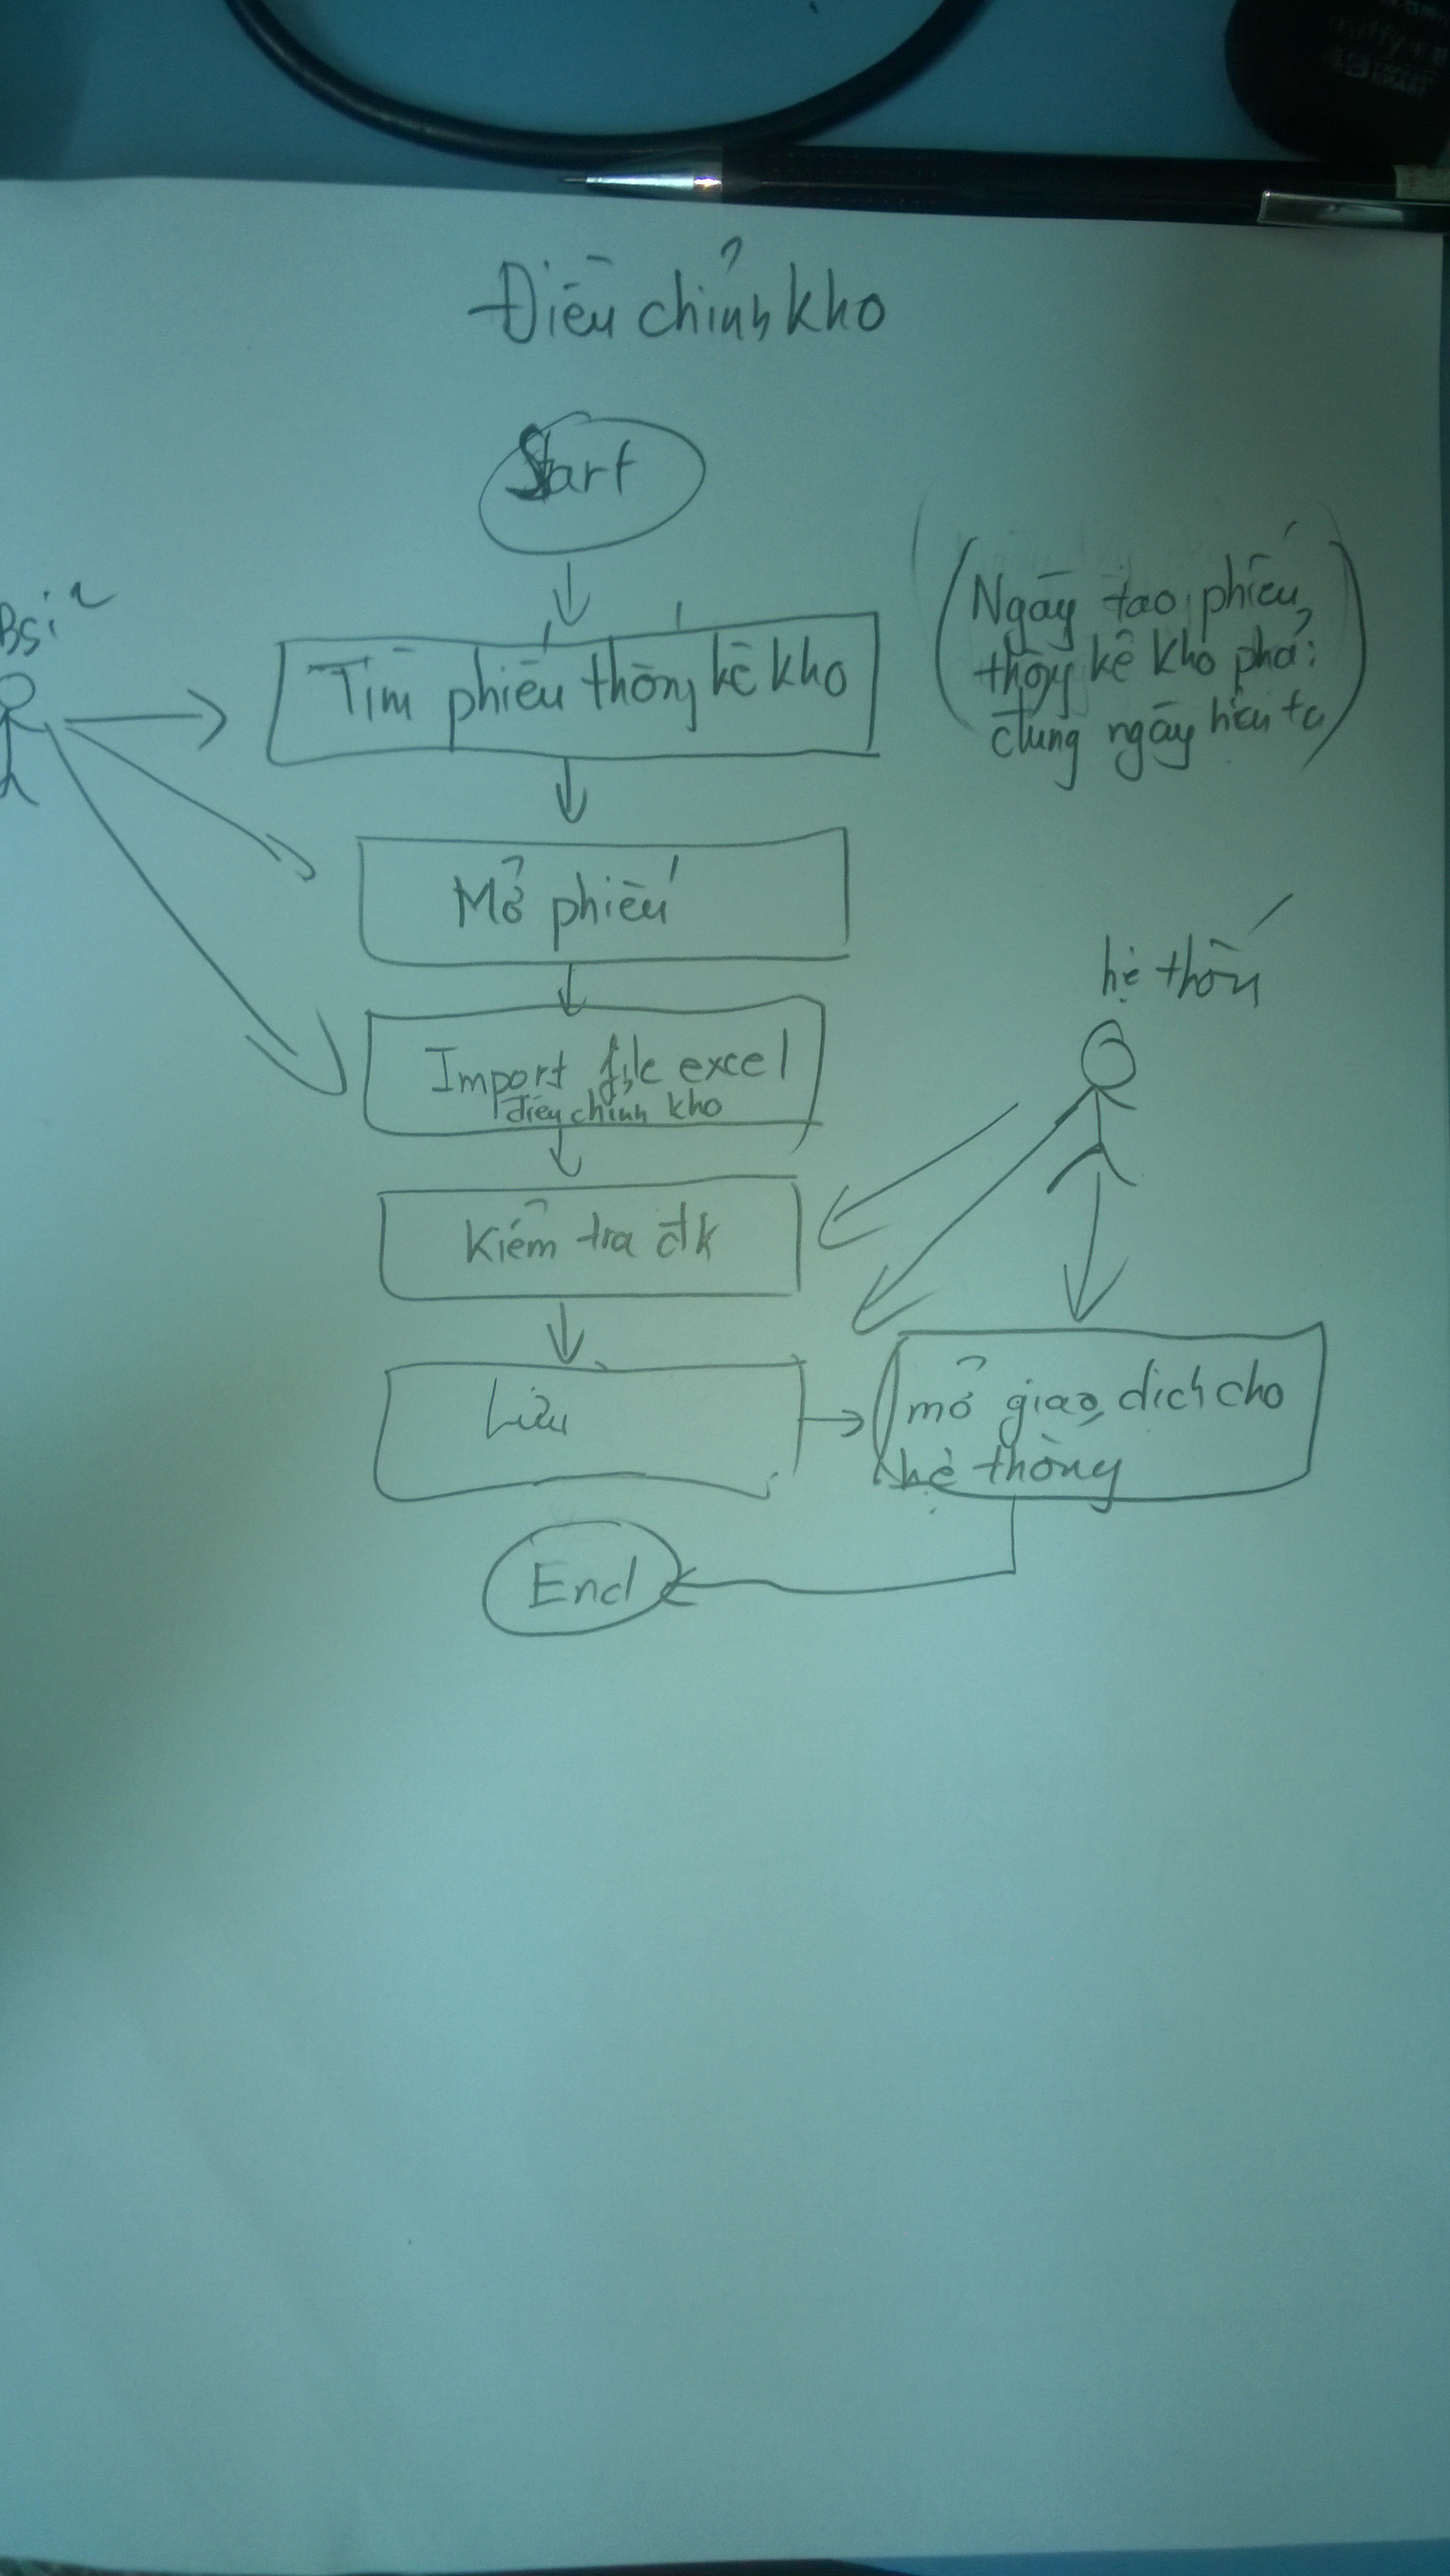 Điều chỉnh kho
Start
Bsĩ
Tìm phiếu thống kê kho
(Ngày tạo phiếu
thống kê kho phải
đúng ngày hiện tạ)
Mở phiếu
hệ thốn
Import file excel
điều chỉnh kho
Kiểm tra đk
Lưu
mở giao dịch cho
hệ thống
End